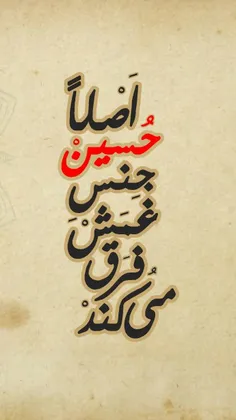 اَصْلاً
حُسین
جِنسِ
غَمَشْ
فَرق
مُی کُندْ